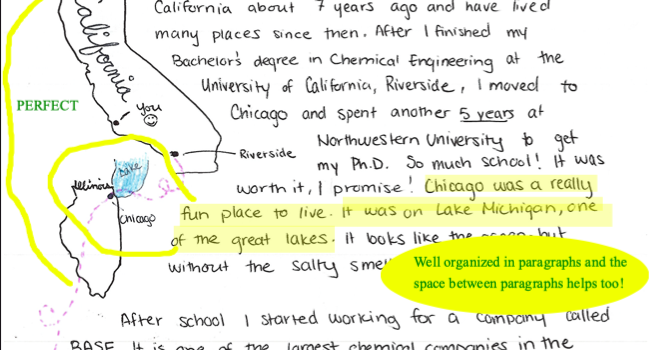 California about 7 years ago and have lived
many places since then. After I finished my
Bachelor's degree in Chemical Engineering at the
University of California, Riverside, I moved to
Chicago and spent another 5 years at
Northwestern University to get
my Ph.D. So much school! It was
worth it, I promise! Chicago was a really
fun place to live. It was on Lake Michigan, one
of the great lakes. It looks like the ocean, but
without the salty
After school I started working for a company called
BASF. It is one of the largest chemical companies in the
California
PERFECT
You
Riverside
Lake
Illinois
Chicago
Well organized in paragraphs and the
space between paragraphs helps too!